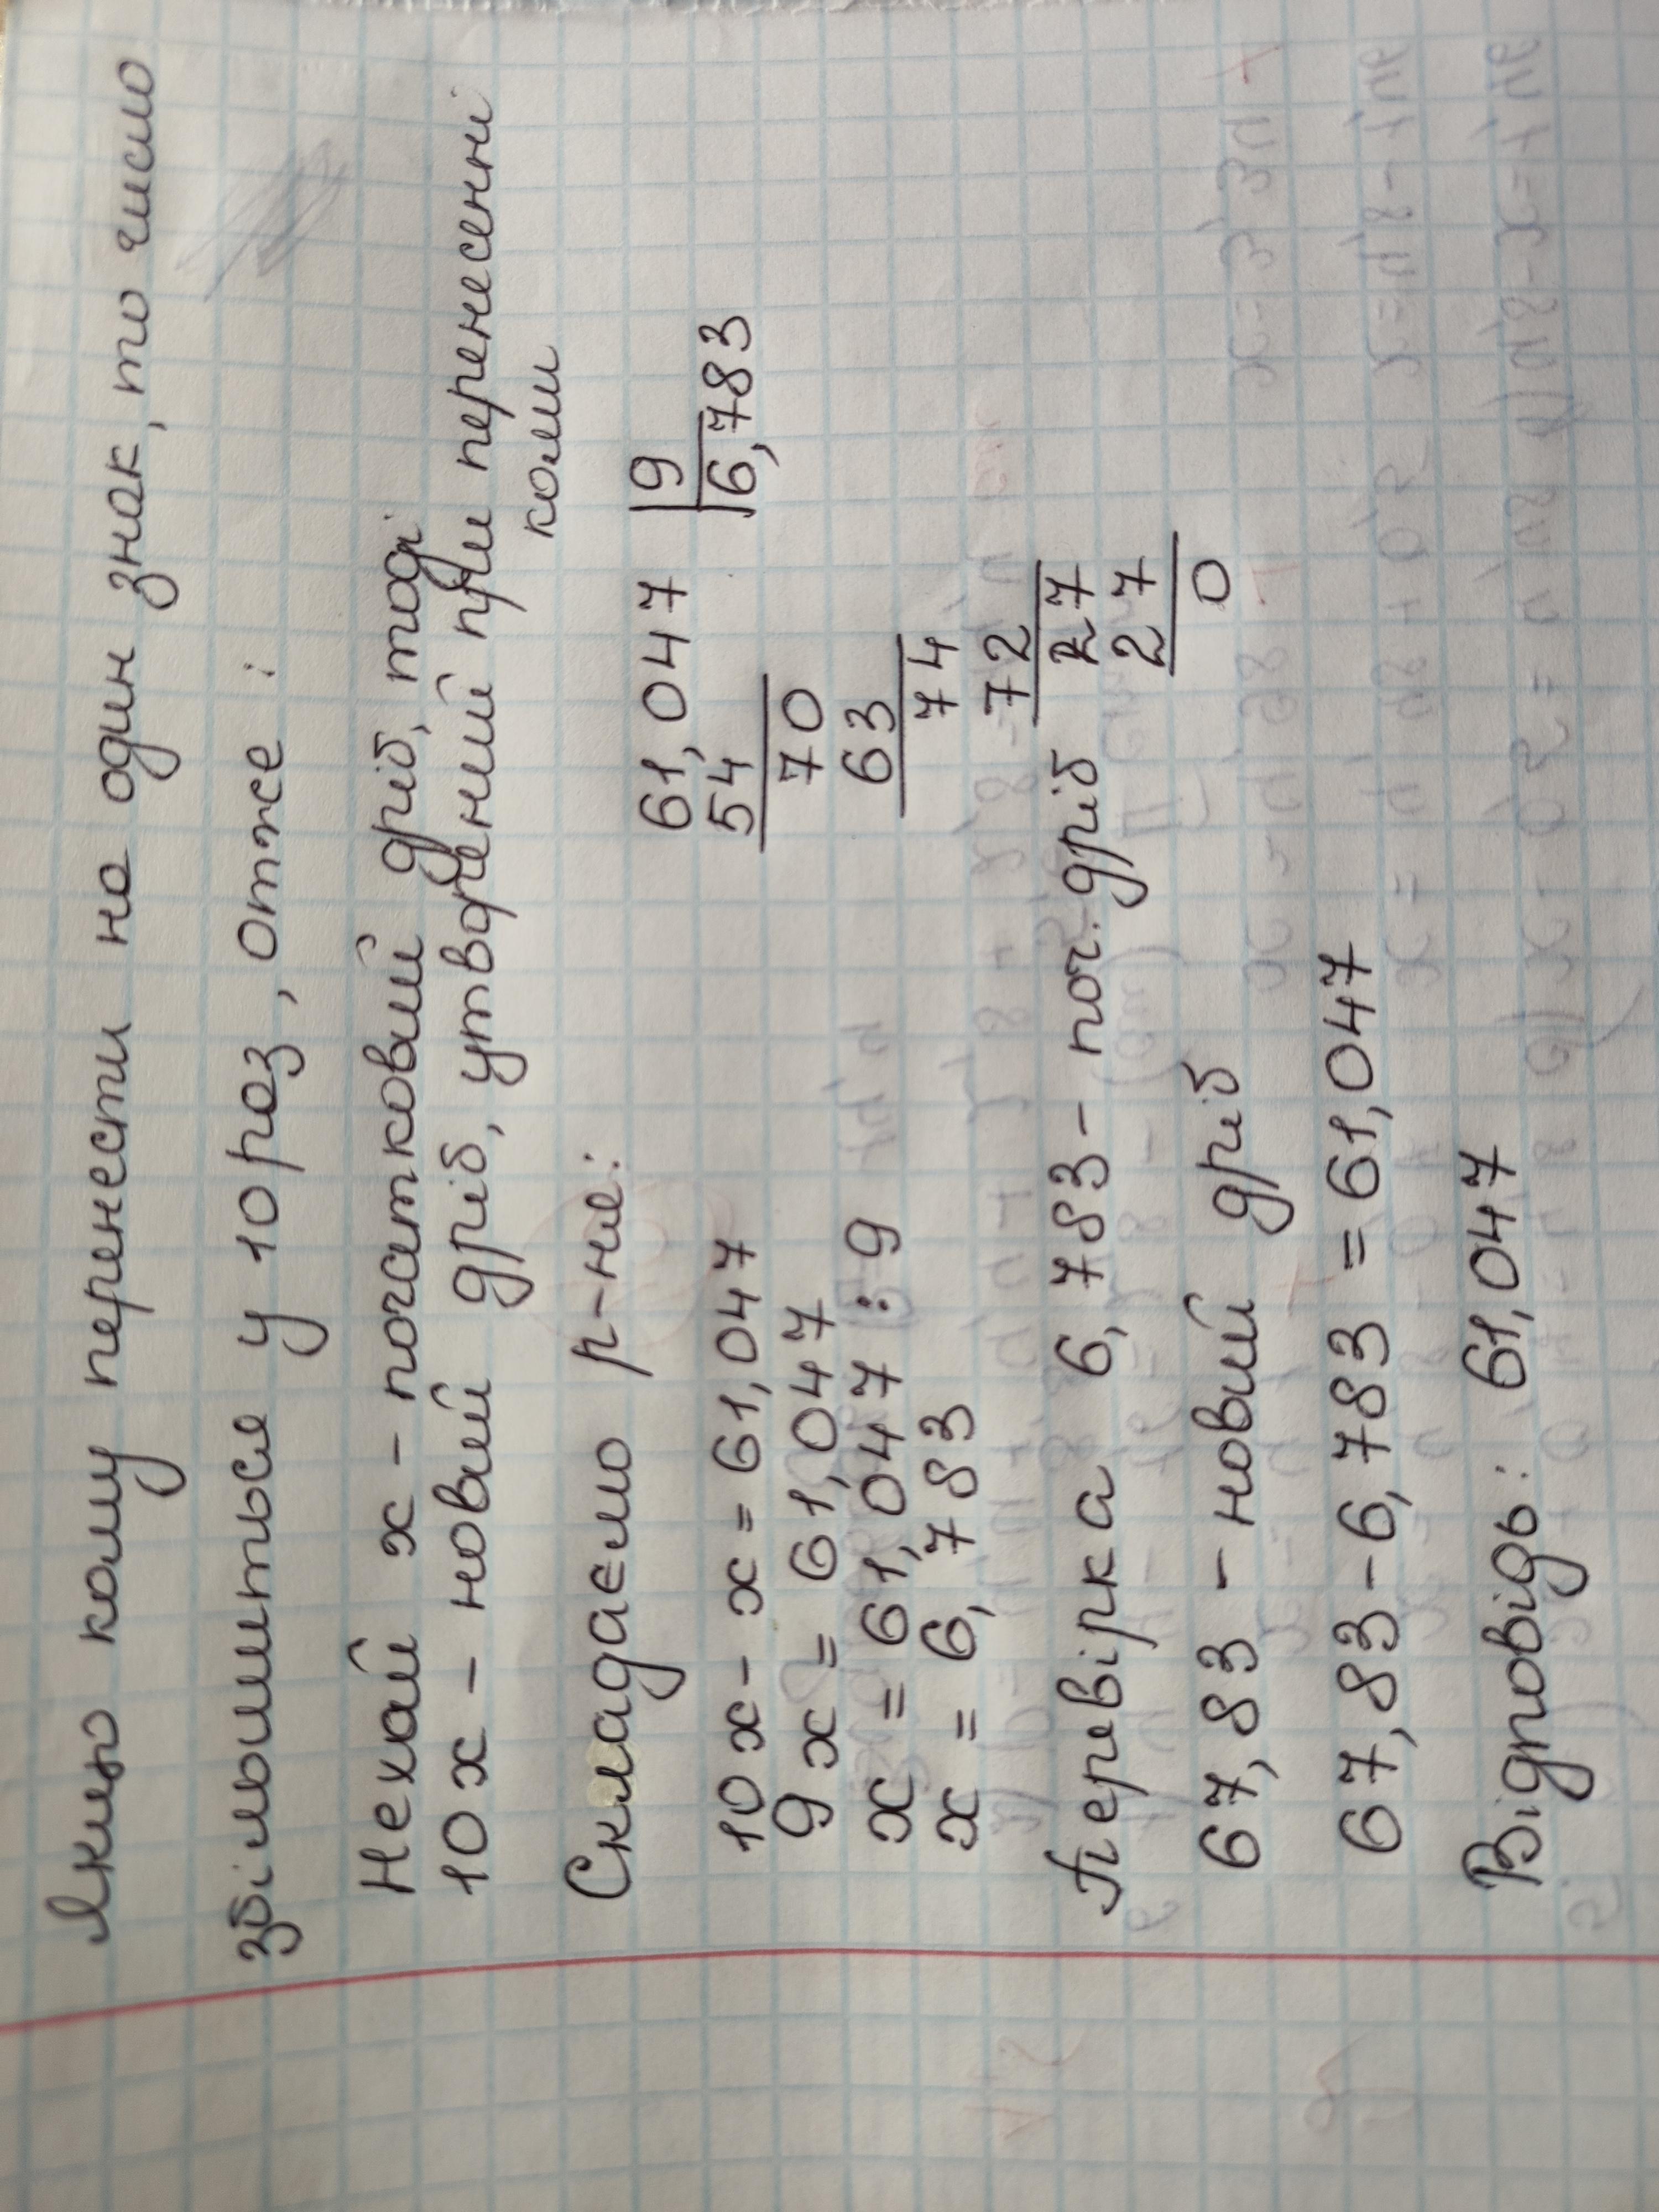 Якщо кому перенести на один знак, то число
збільшиться у 10 раз, отже :
Нехай х - початковий дріб, тоді
10х - новий дріб, утворений при перенесенні
коми
Складаємо р-ня:
10х - х = 61,047
9х = 61,047
х = 61,047 : 9
х = 6,783
61,047 |9
54 |6,783
70
63
74
72
27
27
0
Перевірка 6,783 - поч. дріб
67,83 - новий дріб
67,83 - 6,783 = 61,047
Відповідь: 61,047